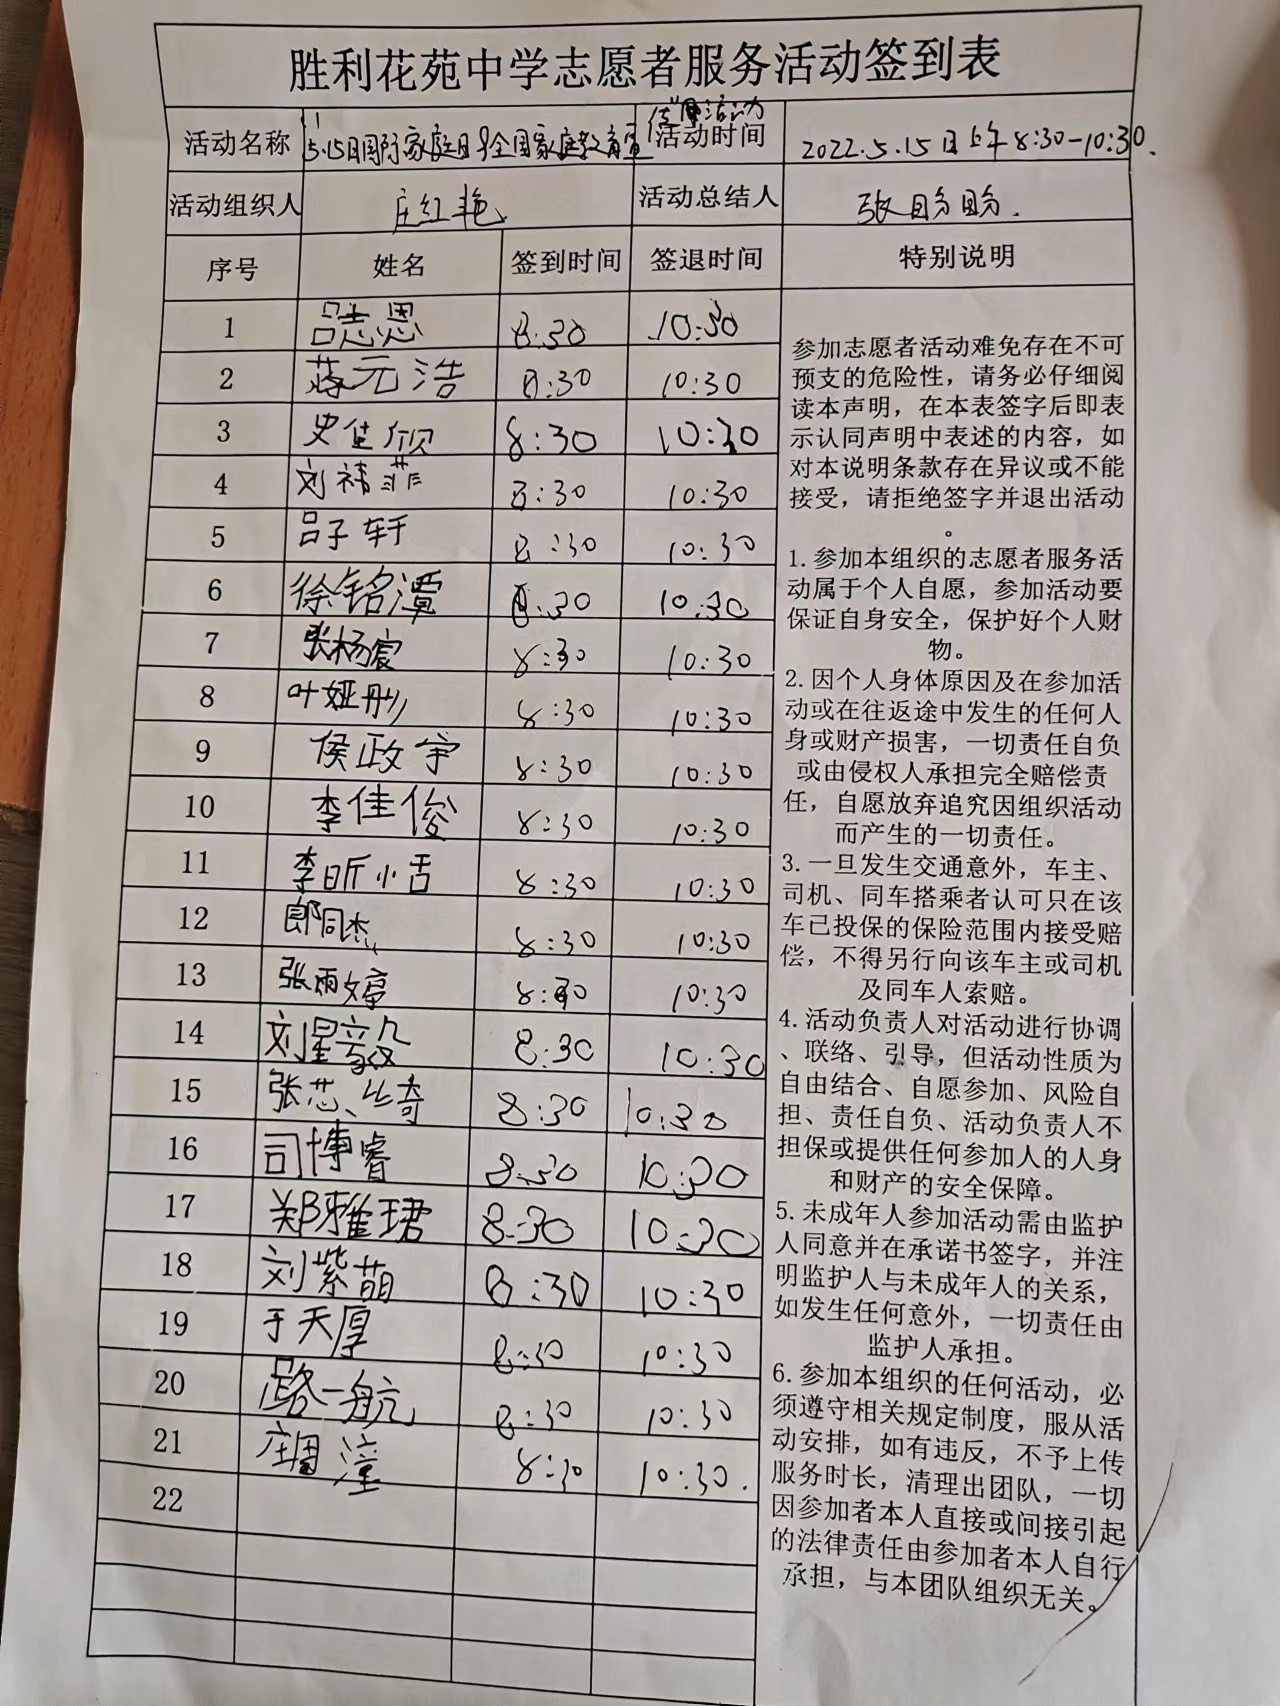 胜利花苑中学志愿者服务活动签到表
活动名称 5.15日国际家庭日暨全国家庭教育宣传周活动 活动时间 2022.5.15日上午8:30-10:30.
活动组织人 庄红艳 活动总结人 张盼盼.
序号 姓名 签到时间 签退时间 特别说明
1 吕志恩 8:30 10:30
2 蒋元浩 8:30 10:30
3 史佳颀 8:30 10:30
4 刘祎菲 8:30 10:30
5 吕子轩 8:30 10:30
6 徐铭潭 8:30 10:30
7 张杨宸 8:30 10:30
8 叶娅彤 8:30 10:30
9 侯政宇 8:30 10:30
10 李佳俊 8:30 10:30
11 李昕恬 8:30 10:30
12 郎同杰 8:30 10:30
13 张雨婷 8:30 10:30
14 刘星毅 8:30 10:30
15 张芯绮 8:30 10:30
16 司博睿 8:30 10:30
17 郑雅珺 8:30 10:30
18 刘紫萌 8:30 10:30
19 于天厚 8:30 10:30
20 路一航 8:30 10:30
21 庄周潼 8:30 10:30.
22
参加志愿者活动难免存在不可
预支的危险性，请务必仔细阅
读本声明，在本表签字后即表
示认同声明中表述的内容，如
对本说明条款存在异议或不能
接受，请拒绝签字并退出活动
。
1.参加本组织的志愿者服务活
动属于个人自愿，参加活动要
保证自身安全，保护好个人财
物。
2.因个人身体原因及在参加活
动或在往返途中发生的任何人
身或财产损害，一切责任自负
或由侵权人承担完全赔偿责
任，自愿放弃追究因组织活动
而产生的一切责任。
3.一旦发生交通意外，车主、
司机、同车搭乘者认可只在该
车已投保的保险范围内接受赔
偿，不得另行向该车主或司机
及同车人索赔。
4.活动负责人对活动进行协调
、联络、引导，但活动性质为
自由结合、自愿参加、风险自
担、责任自负、活动负责人不
担保或提供任何参加人的人身
和财产的安全保障。
5.未成年人参加活动需由监护
人同意并在承诺书签字，并注
明监护人与未成年人的关系，
如发生任何意外，一切责任由
监护人承担。
6.参加本组织的任何活动，必
须遵守相关规定制度，服从活
动安排，如有违反，不予上传
服务时长，清理出团队，一切
因参加者本人直接或间接引起
的法律责任由参加者本人自行
承担，与本团队组织无关。